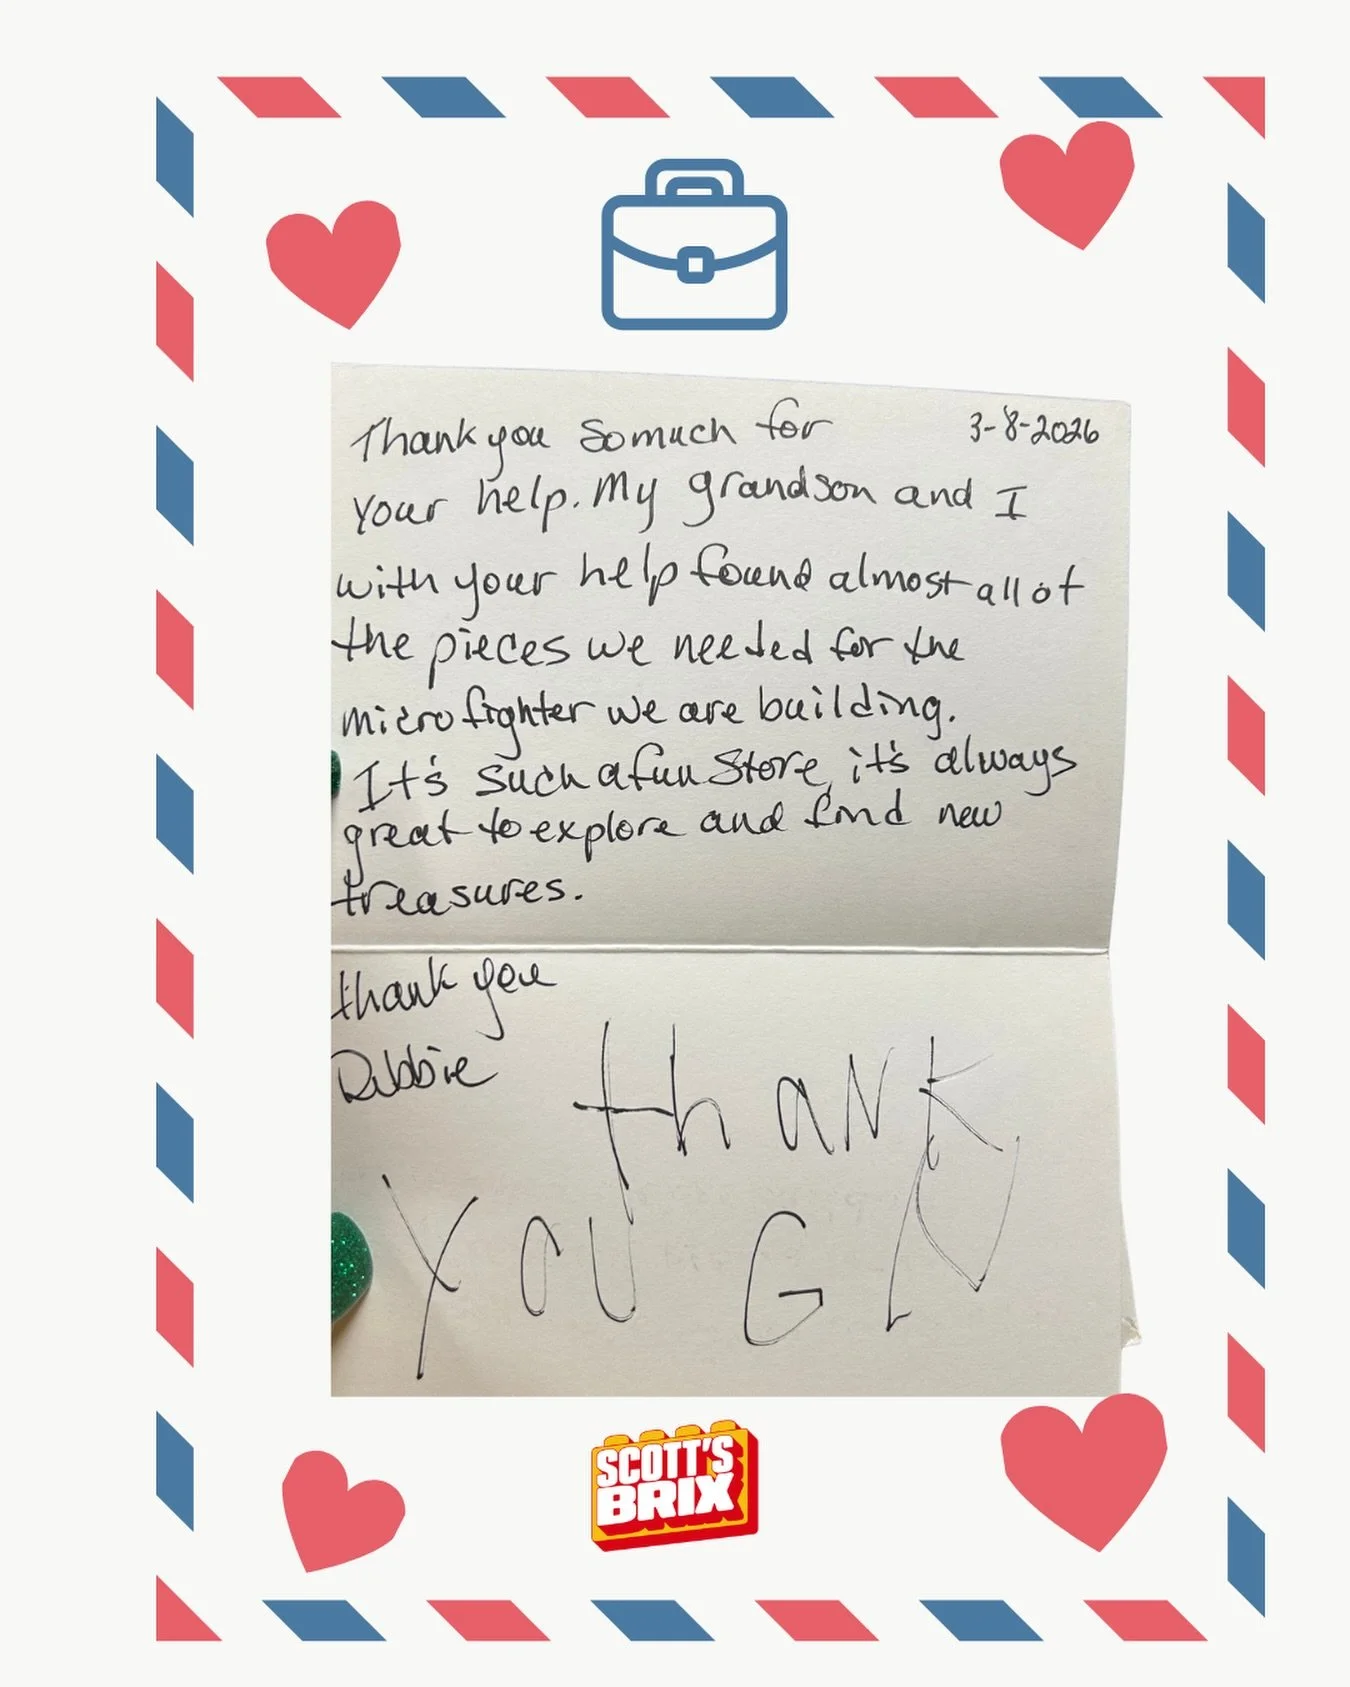 3-8-2026
Thank you so much for
your help. My grandson and I
with your help found almost all of
the pieces we needed for the
microfighter we are building.
It's such a fun store, it's always
great to explore and find new
treasures.
thank you
Debbie
thank
you G
SCOTT'S
BRIX